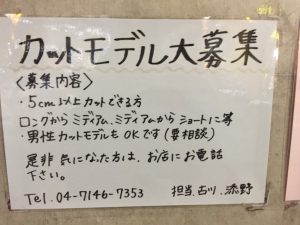 カットモデル大募集
〈募集内容〉
・5cm以上カットできる方
ロングからミディアム、ミディアムからショートに等
・男性カットモデルもOKです(要相談)
是非気になった方は、お店にお電話
下さい。
Tel.04-7146-7353 担当、古川、添野